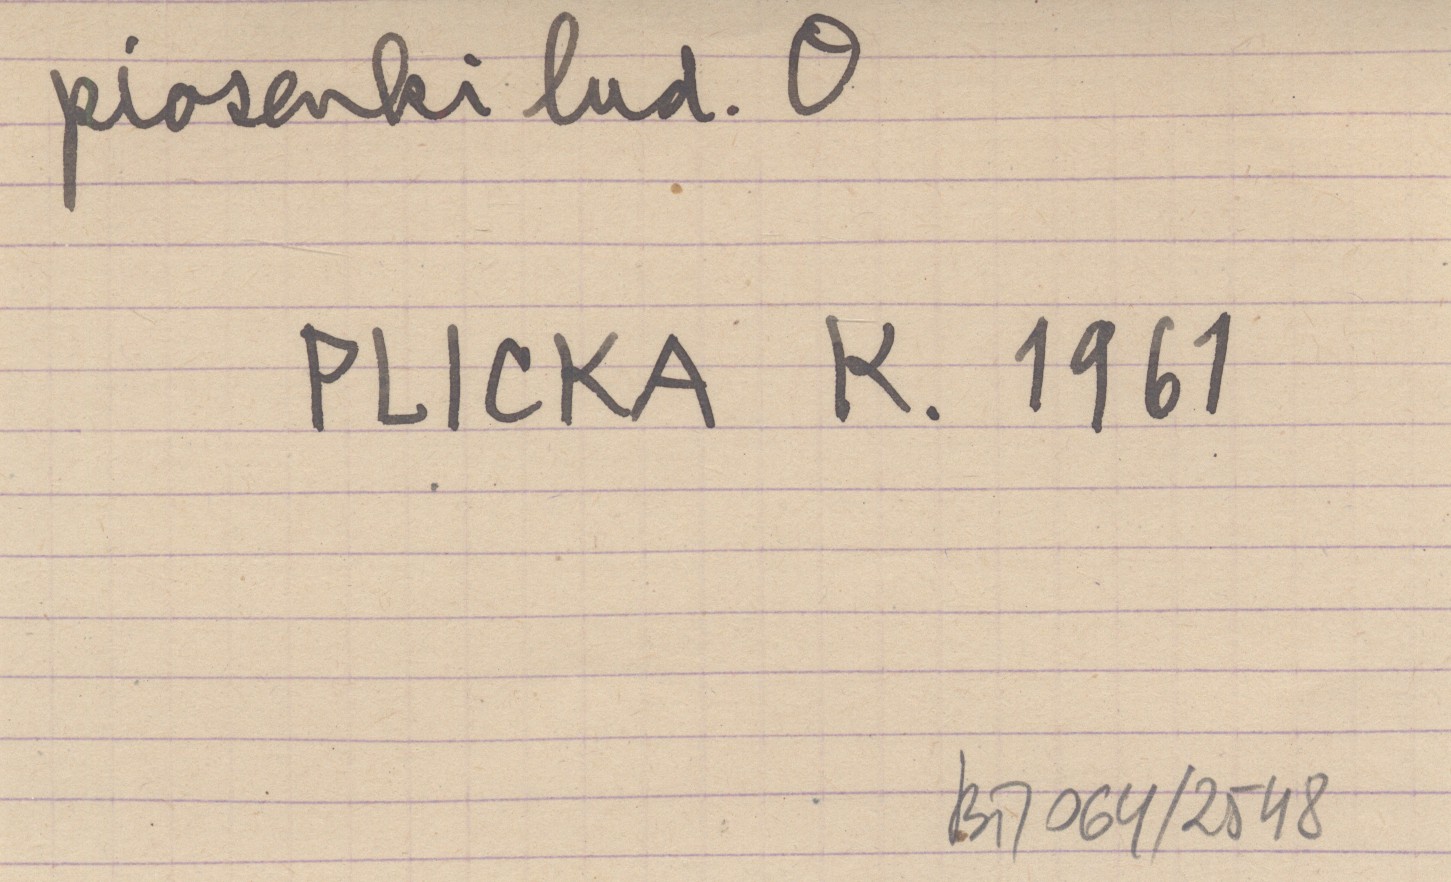 piosenki lud. O
PLICKA K. 1961
064/2548